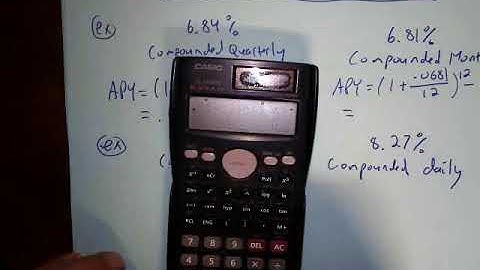 ex 6.84% 6.81%
Compounded Quarterly Compounded Mont
CASIO
APY = (1 APY = (1 + .0681/12)^12 -
= . =
ex 8.27%
(
Compounded daily
hyp sin cos tan
RCL ENG ( ) , M+
7 8 9 DEL AC
4 5 6 × ÷